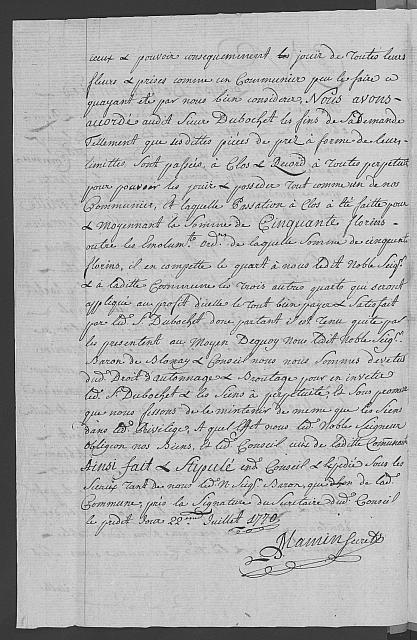 iceux & pouvoir consequemment les jouir de Toutes leurs
fleurs & prises comme un Communier peu le faire ce
quayant été par nous bien considéré, Nous avons
accordé audit Sieur Dubochet les fins de sa Demande
Tellement que lesdittes pièces de prez à forme de leurs
limittes, sont passées, à Clos & Record à Toutes perpetuité
pour pouvoir les jouir & posseder Tout comme un de nos
Communier, & laquelle Passation à Clos à été faitte pour
& moyennant la Somme de Cinquante florins
outre les Emolumts. Ord. de laquelle Somme de cinquante
florins, il en compette le quart à nous ledit Noble Seigr.
& à laditte Commune les Trois autres quarts qui seront
appliqué au profit d'icelle le Tout bien payé & Satisfait
par led. Sr. Dubochet donc partant il est tenu quite par
les presentent au Moyen Dequoy Nous ledit Noble Seigr.
Baron de Blonay & Conseil nous nous Sommes devetus
dud. Droit d'autonnage & Broutage pour en investir
led. Sr. Dubochet & les Siens à perpétuité, & Sous promesse
que nous faisons de le maintenir de meme que les Siens
dans led. Privilege, A quel Effet nous led. Noble Seigneur
Obligeon nos Biens, & led. Conseil ceux de laditte Commune
Ainsi fait & Stipulé en Conseil & Expedié Sous les
Sceaux tant de nous led. N. Seigr. Baron, que de lad.
Commune, près la Signature du Secretaire dud. Conseil
le predit Jour 22eme Juillet 1770
Mamin Secrere